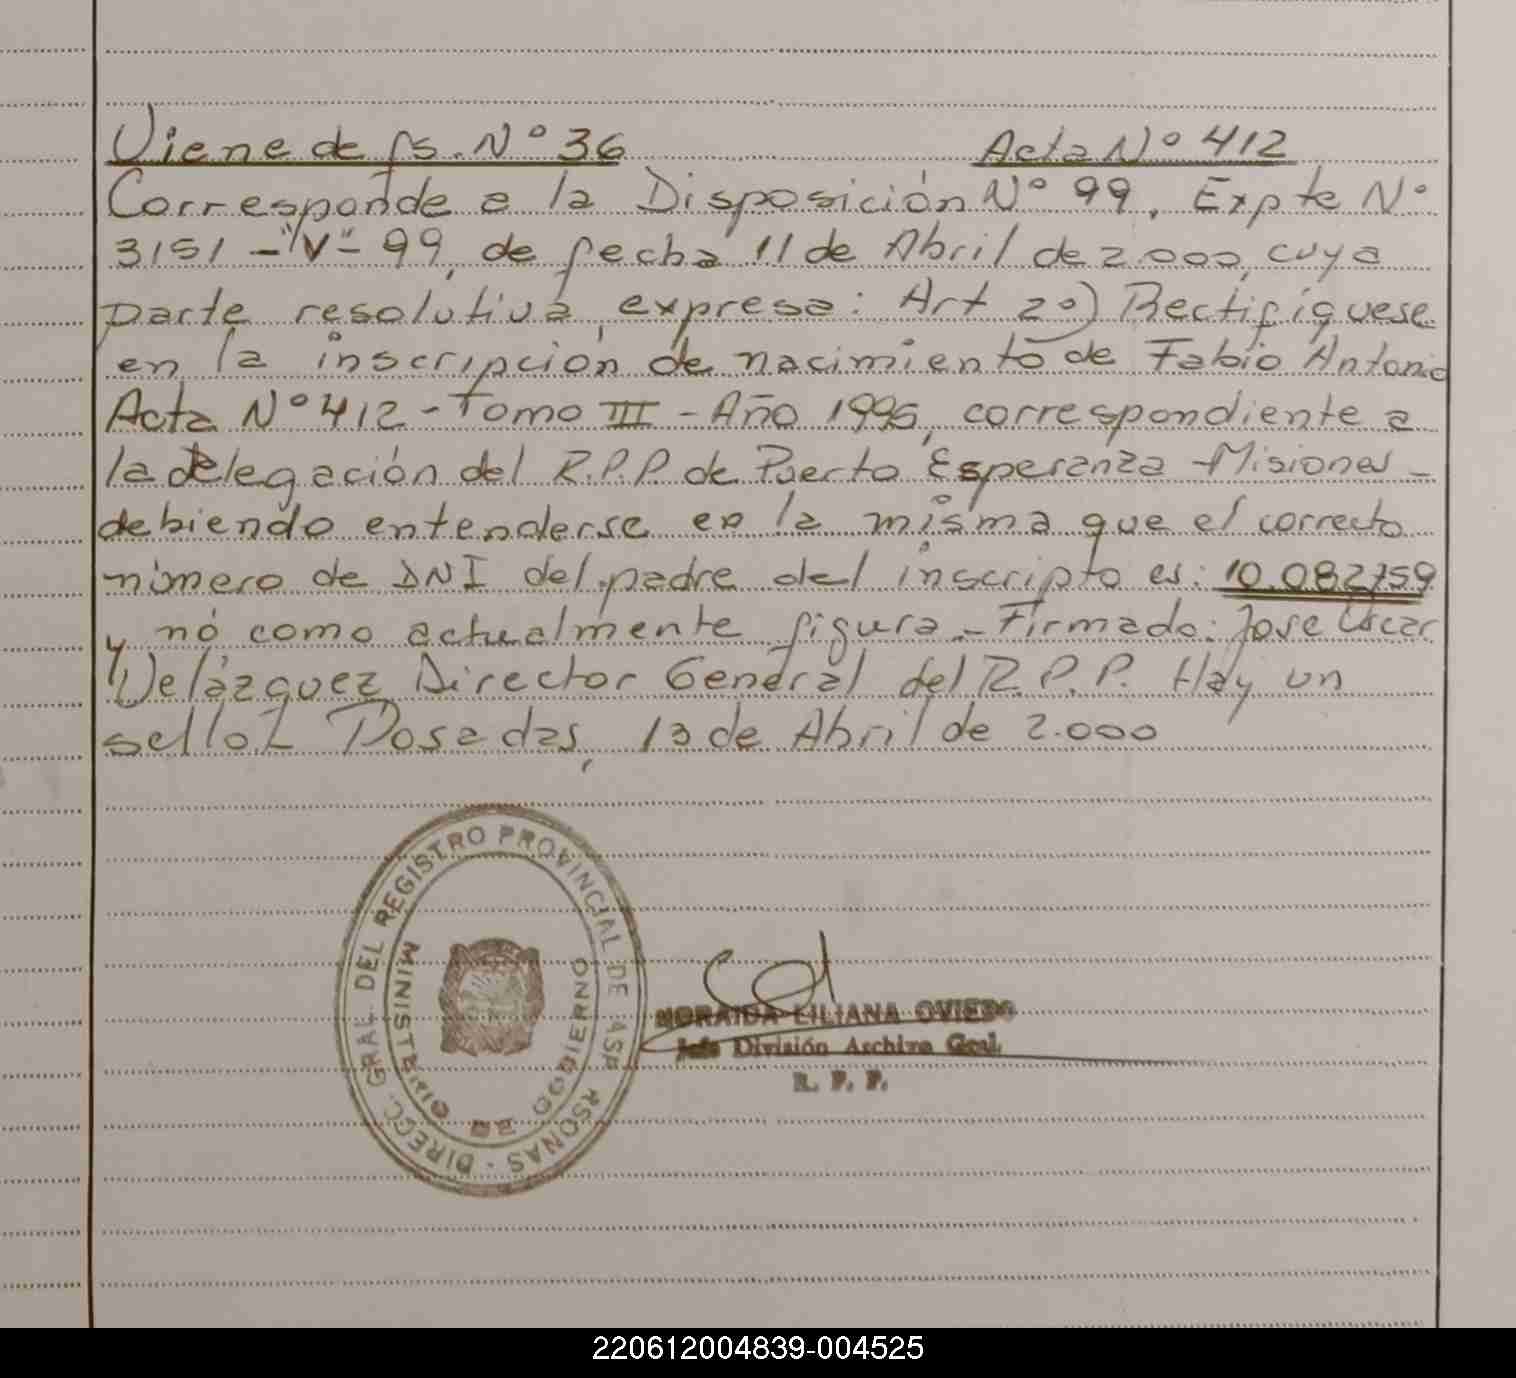 Viene de fs. Nº 36 Acta Nº 412
Corresponde a la Disposición Nº 99, Expte Nº
3151 -"V"- 99, de fecha 11 de Abril de 2.000, cuya
parte resolutiva, expresa: Art 2º) Rectifíquese
en la inscripción de nacimiento de Fabio Antonio
Acta Nº 412 - Tomo III - Año 1995, correspondiente a
la delegación del R.P.P. de Puerto Esperanza - Misiones -
debiendo entenderse en la misma que el correcto
número de DNI del padre del inscripto es: 10.082.759
y nó como actualmente figura - Firmado: Jose Oscar
Velázquez Director General del R.P.P. Hay un
sello Posadas, 13 de Abril de 2.000
DIREC. GRAL. DEL REGISTRO PROVINCIAL DE
MINISTERIO DE GOBIERNO
NORAIDA LILIANA OVIEDO
Jefe División Archivo Gral.
R. P. P.
220612004839-004525